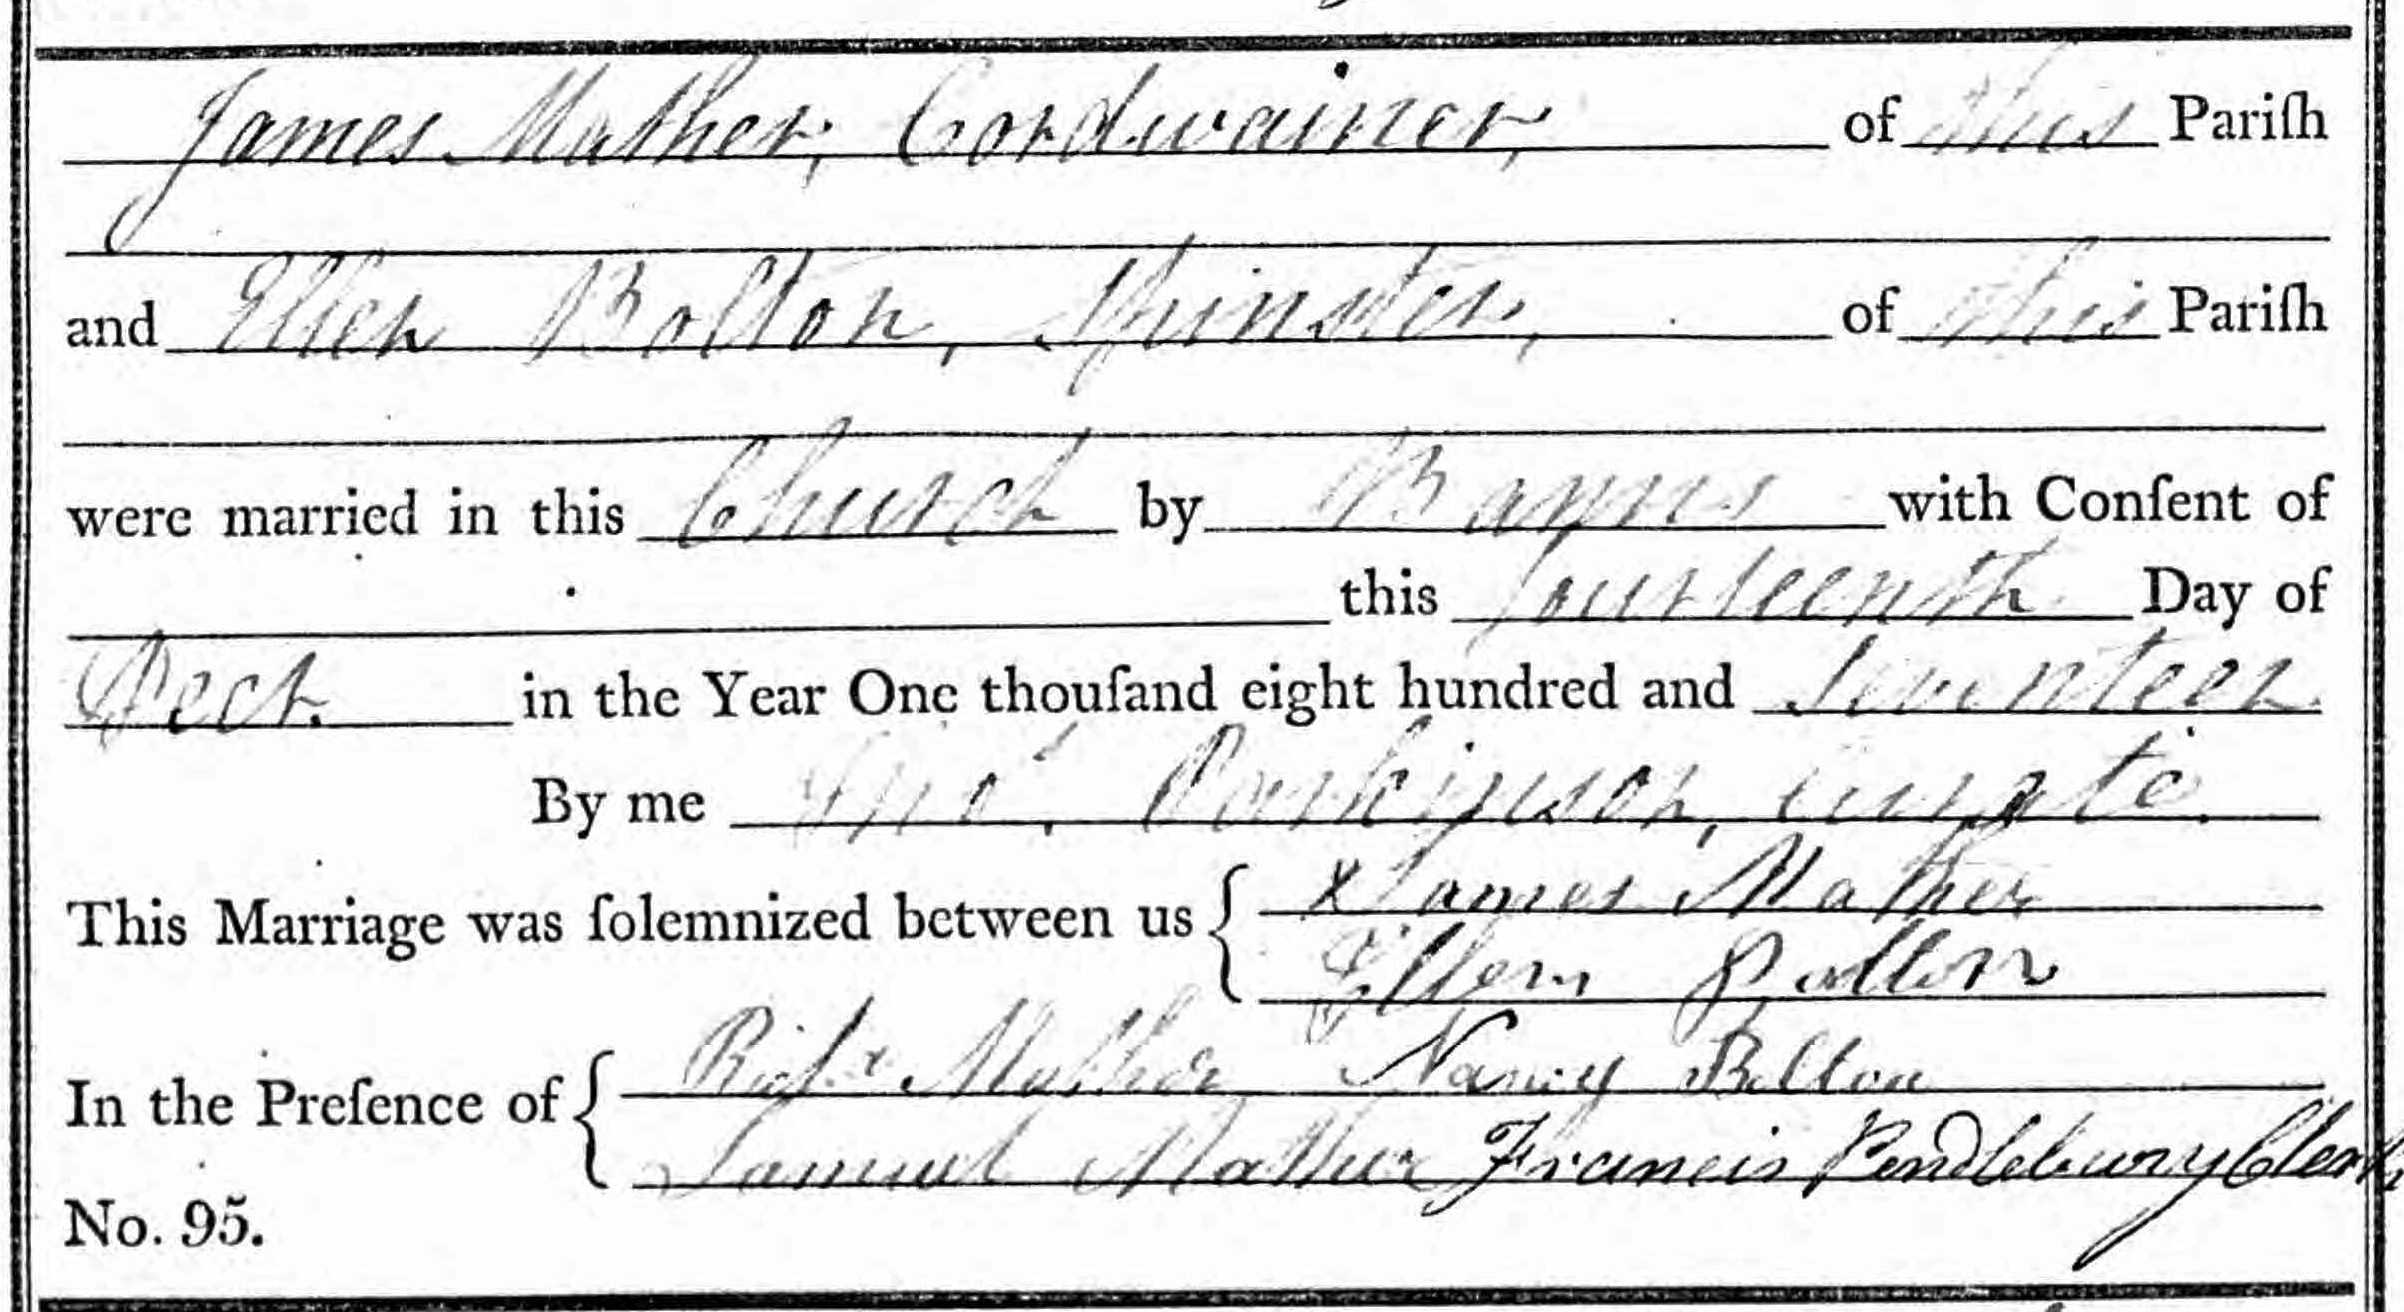 James Mather, Cordwainer, of this Pariſh
and Ellen Bolton, Spinster, of this Pariſh
were married in this Church by Banns with Conſent of
this fourteenth Day of
Decr. in the Year One thouſand eight hundred and Seventeen
By me Jno. Parkinson, Curate.
This Marriage was ſolemnized between us { x James Mather
Ellen Bolton
In the Preſence of { Richd Mather Nancy Bolton
Samuel Mather Francis Pendlebury Clerk
No. 95.